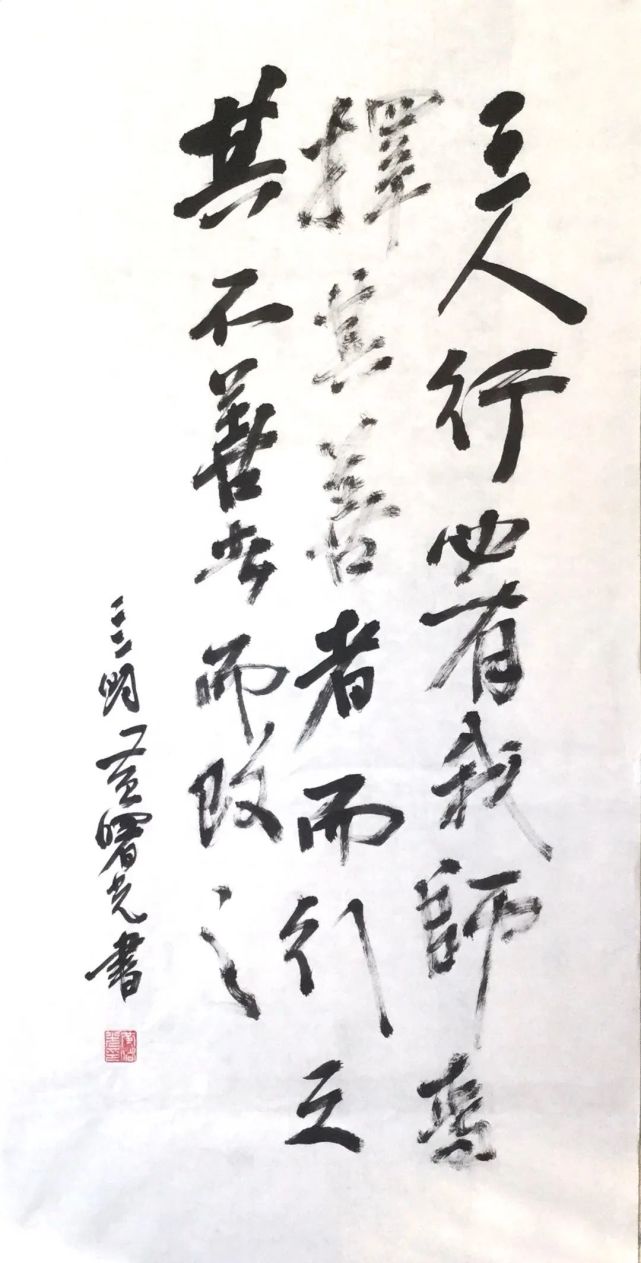 三人行必有我師焉
擇其善者而行之
其不善者而改之
三明黃曙光書